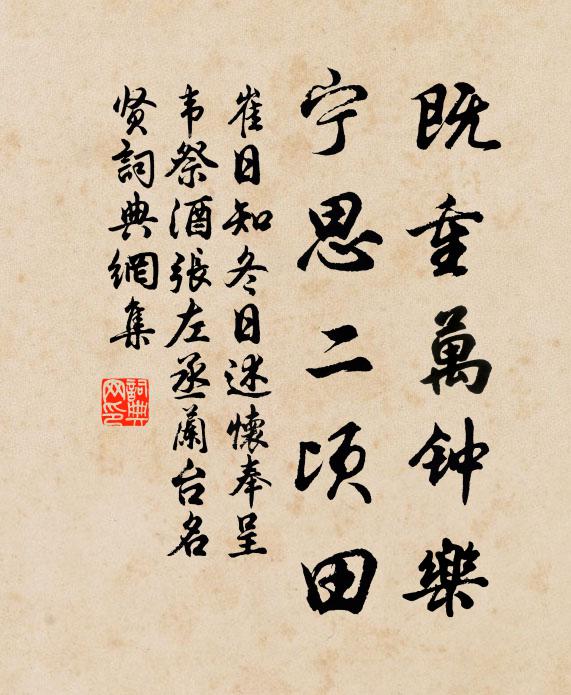 既重萬钟樂
宁思二顷田
崔日知冬日述懷奉呈
韦祭酒張左丞蘭台名
贤詞典網集
詞典网印